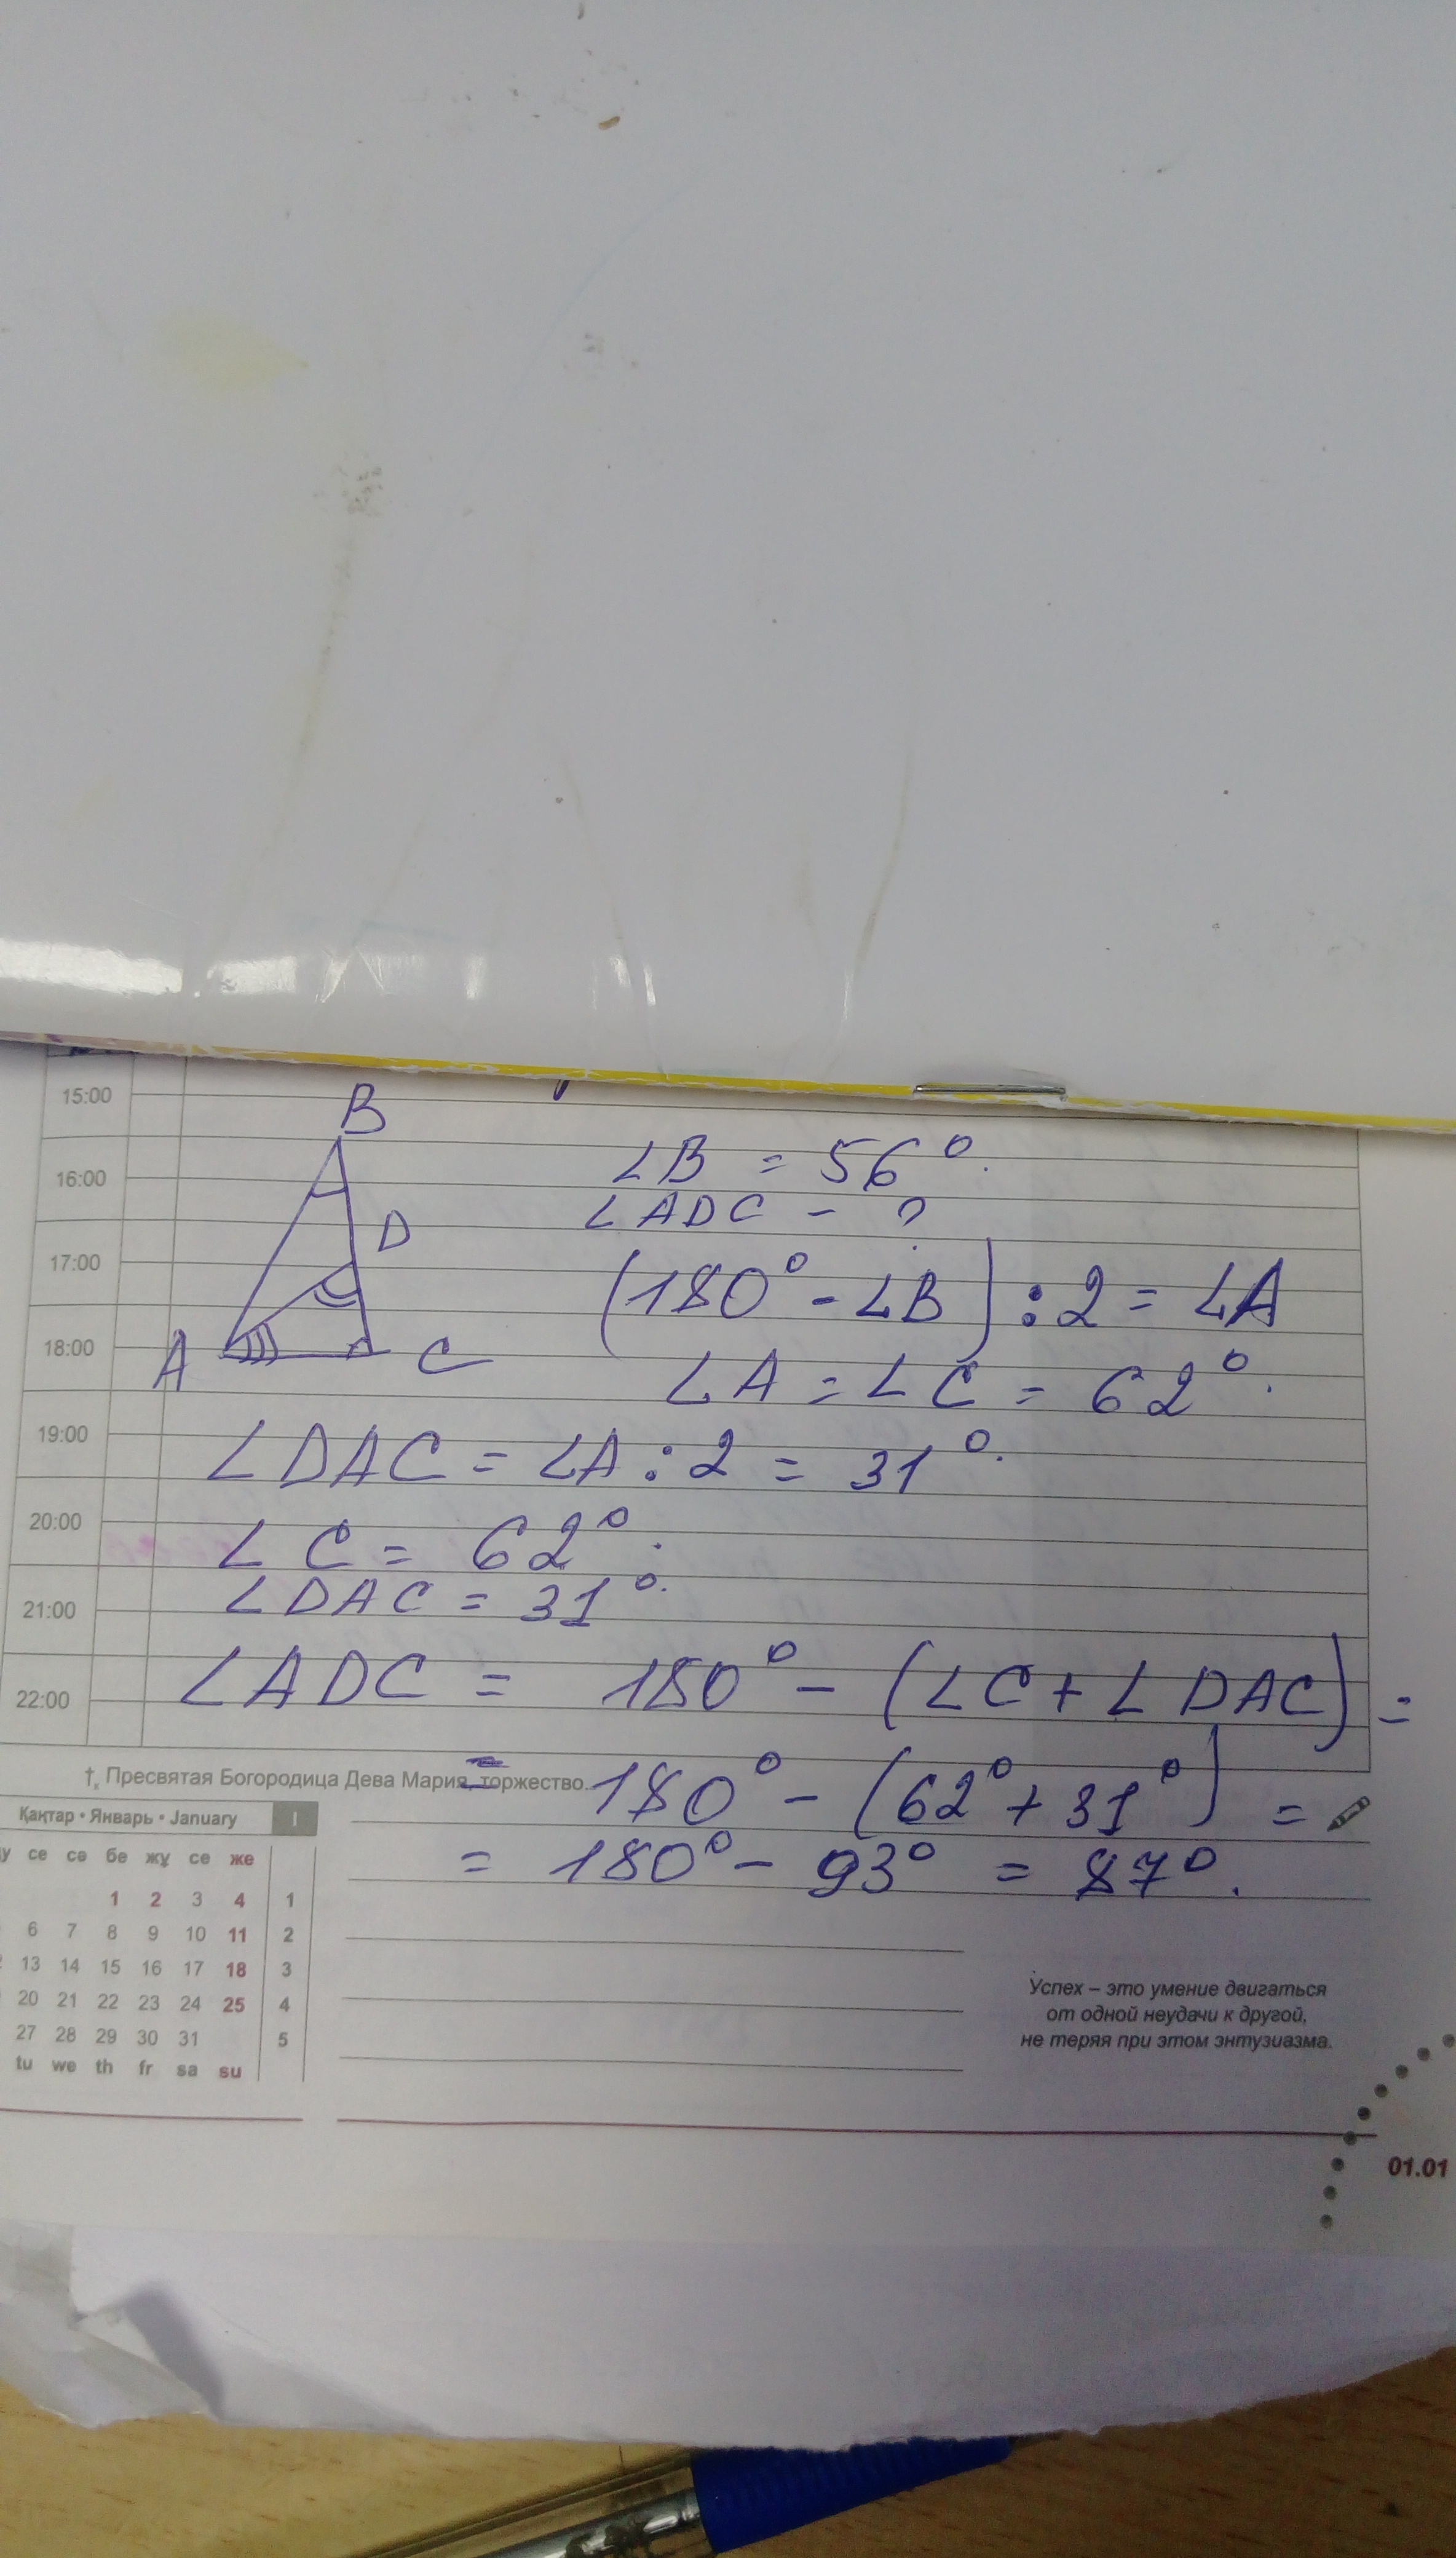 15:00
B
∠B = 56°.
16:00
∠ADC - ?
D
17:00
(180° - ∠B) : 2 = ∠A
18:00
A
C
∠A = ∠C = 62°.
19:00
∠DAC = ∠A : 2 = 31°.
20:00
∠C = 62°.
21:00
∠DAC = 31°.
22:00
∠ADC = 180° - (∠C + ∠DAC) =
= 180° - (62° + 31°) =
= 180° - 93° = 87°.
Пресвятая Богородица Дева Мария, торжество.
Қаңтар • Январь • January I
се сә бе жұ се же
1 2 3 4 1
6 7 8 9 10 11 2
13 14 15 16 17 18 3
20 21 22 23 24 25 4
27 28 29 30 31 5
tu we th fr sa su
Успех – это умение двигаться
от одной неудачи к другой,
не теряя при этом энтузиазма.
01.01